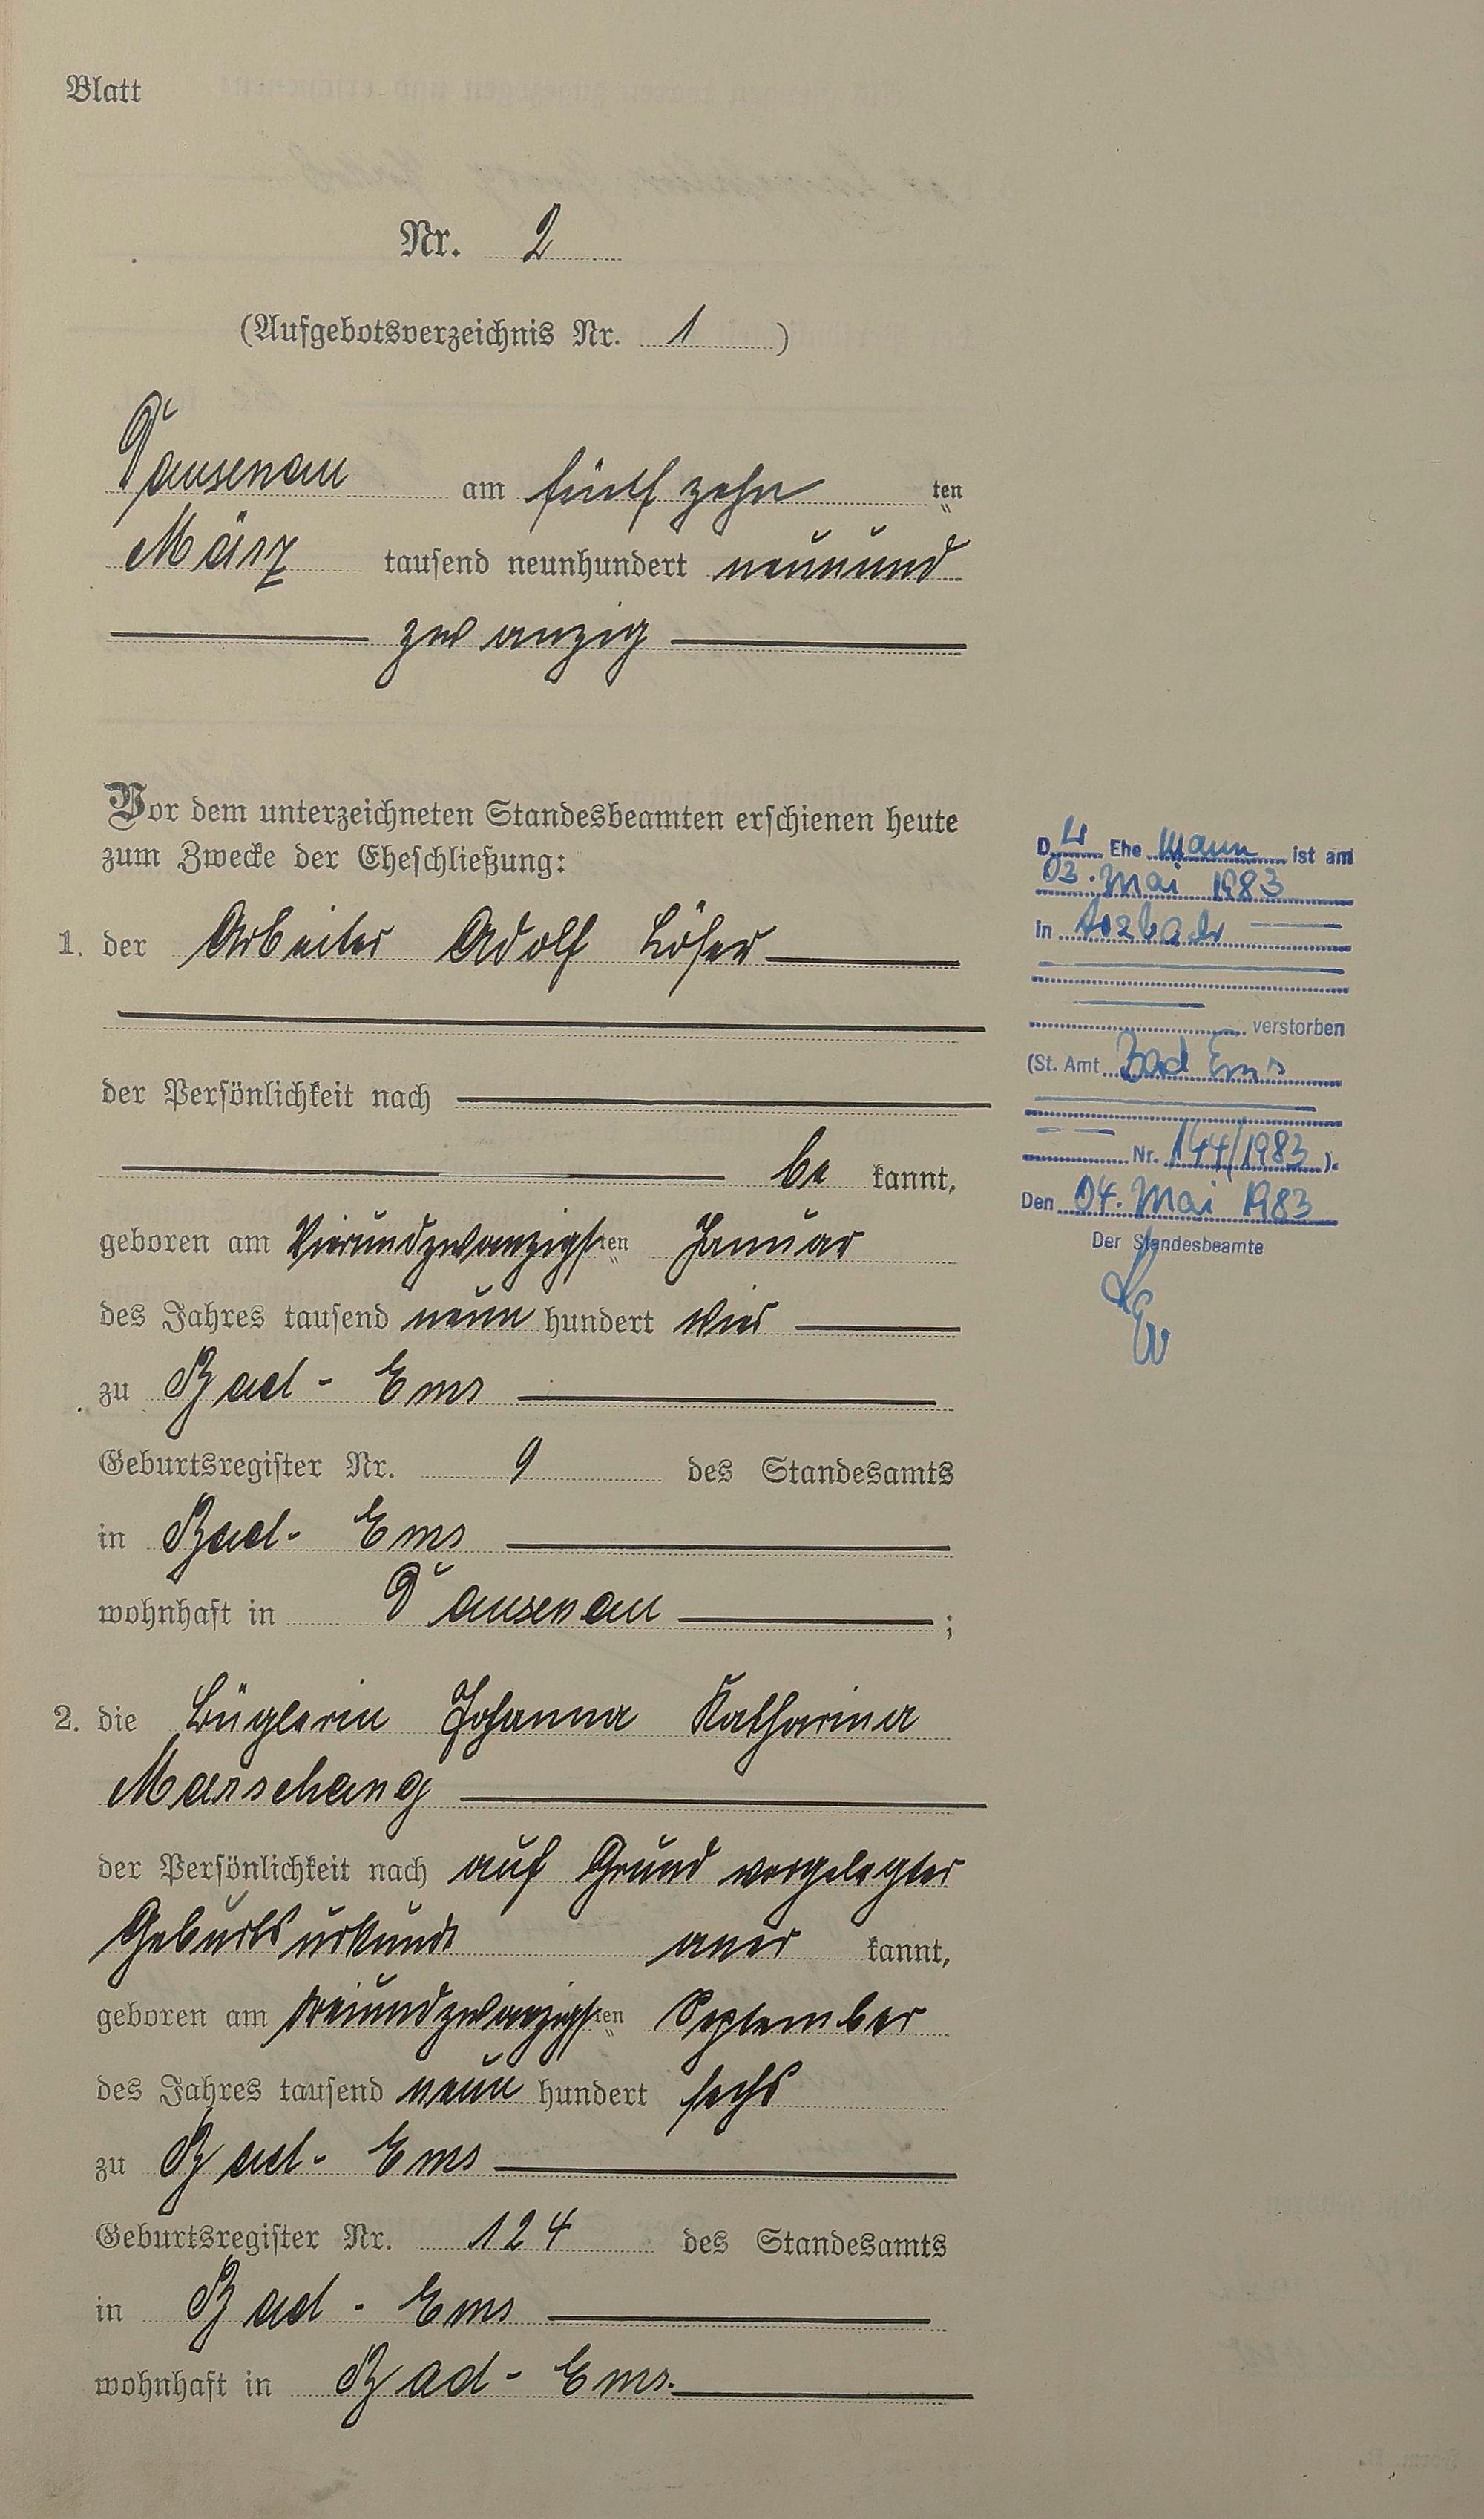 Blatt
Nr. 2
(Aufgebotsverzeichnis Nr. 1 )
Dausenau am fünfzehn ten
März tausend neunhundert neunund
zwanzig
Vor dem unterzeichneten Standesbeamten erschienen heute
zum Zwecke der Eheschließung:
1. der Arbeiter Adolf Löser
der Persönlichkeit nach
be kannt,
geboren am Vierundzwanzigsten Januar
des Jahres tausend neun hundert vier
zu Bad-Ems
Geburtsregister Nr. 9 des Standesamts
in Bad-Ems
wohnhaft in Dausenau ;
2. die Büglerin Johanna Katharina
Marschang
der Persönlichkeit nach auf Grund vorgelegter
Geburtsurkunde aner kannt,
geboren am dreiundzwanzigsten September
des Jahres tausend neun hundert sechs
zu Bad-Ems
Geburtsregister Nr. 124 des Standesamts
in Bad-Ems
wohnhaft in Bad-Ems.
Der Ehe mann ist am
03. Mai 1983
in
verstorben
(St. Amt Bad Ems
Nr. 144/1983 ).
Den 04. Mai 1983
Der Standesbeamte